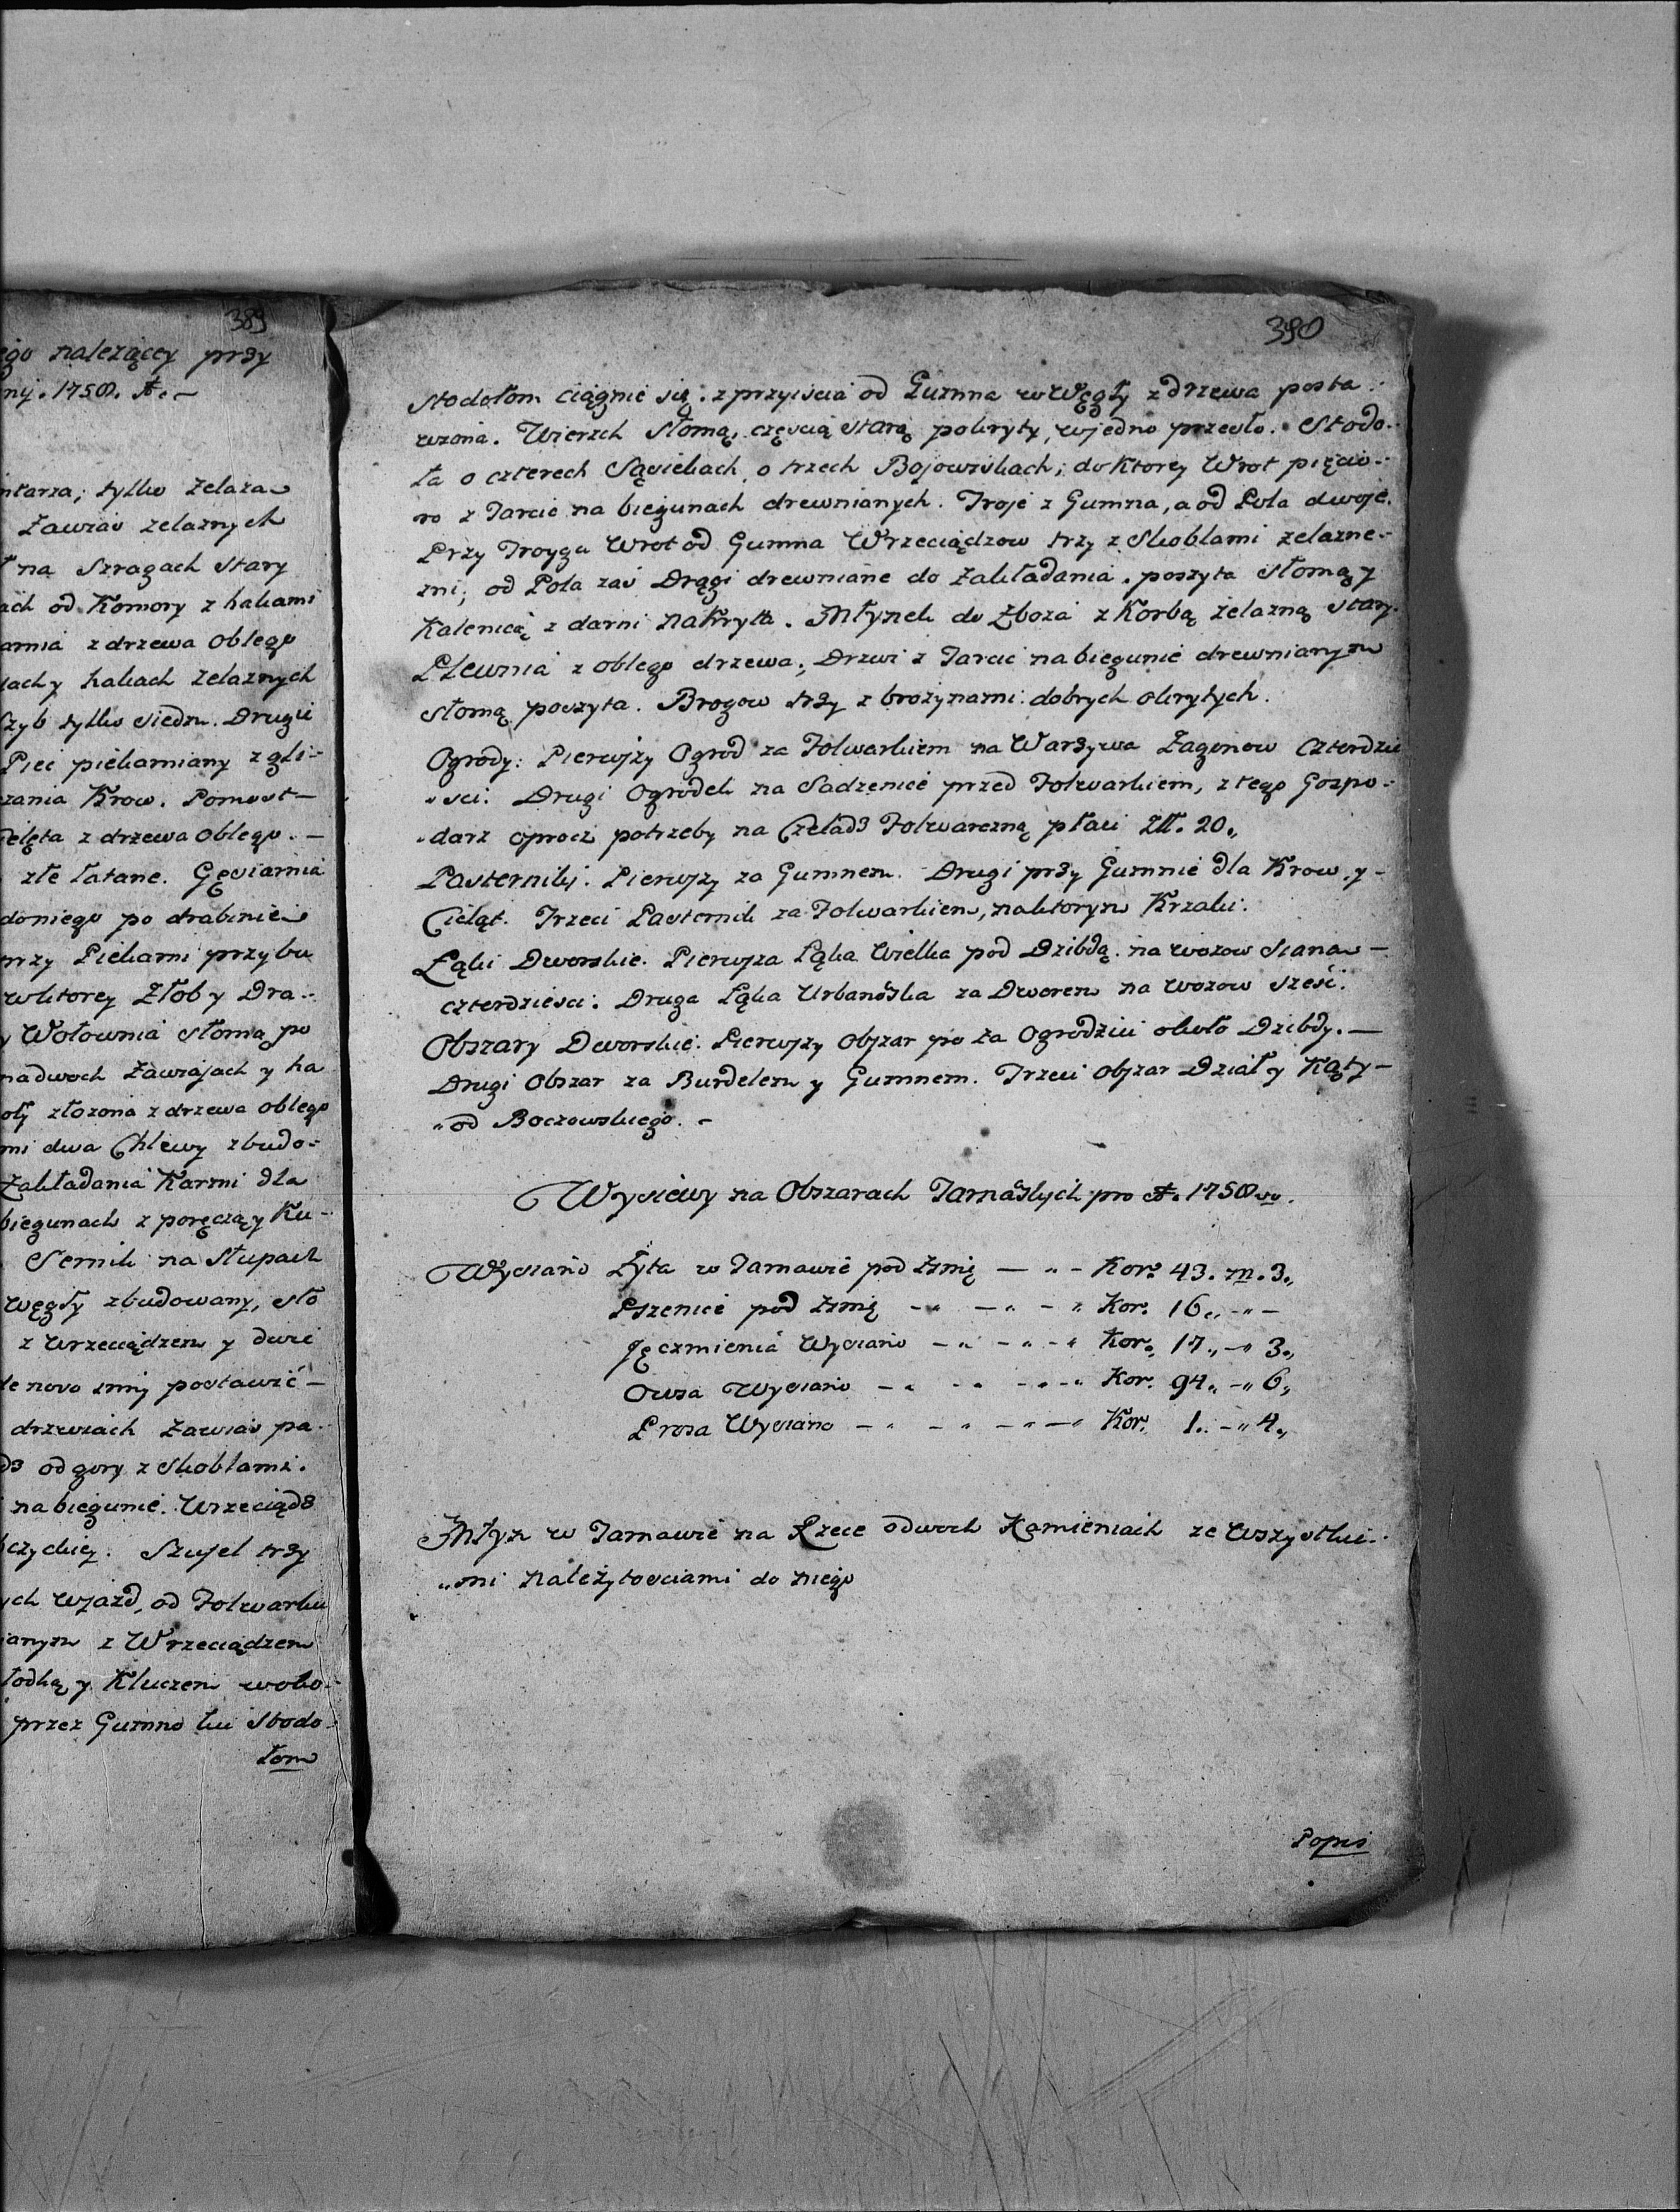 389
ego nalezącey przy
nij. 1750. A. –
ntarza; tylko zelaza
Zawias zelaznych
na Szragach stary
ach od Komory z hakami
arnia z drzewa oblego
lach y hakach zelaznych
Szyb tylko siedm. Drugie
Piec piekarniany z gli-
zania Krow. Pomost –
Cielęta z drzewa oblego. –
złe łatane. Gęsiarnia
doniego po drabinie
przy Piekarni przybu
wktorey Złob y Dra-
y Wołownia słomą po
nadwoch Zawiasach y ha
oły złozona z drzewa oblego
mi dwa Chlewy zbudo-
Zakładania Karmi dla
biegunach z poręczą y Ku-
Sernik na Słupach
węgły zbudowany, sło
z wrzeciądzem y dwie
de novo tniy postawić –
drzwiach Zawias pa
dz od gory z Skoblami.
na biegunie. Wrzeciądz
czyckiey. Szufel trzy
ych wjazd, od Folwarku
ianym z Wrzeciądzem
łodką y Kluczem woko-
przez Gumno ku Stodo-
łom
390
stodołom ciągnie się. z przyiscia od Gumna w Węgły z drzewa posta-
wiona. Wierzch słomą, częscią starą pokryty, wjedno przesło. Stodo-
ła o czterech Sąsiekach, o trzech Bojowiskach; do ktorey Wrot pięcio-
ro z Tarcic na biegunach drewnianych. Troje z Gumna, a od Pola dwoje.
Przy Troygu Wrot od Gumna Wrzeciądzow trzy z Skoblami zelazne-
mi; od Pola zaś Drągi drewniane do zakładania. poszyta słomą y
Kalenicą z darni nakryta. Młynek do Zboza z Korbą zelazną stary.
Plewnia z oblego drzewa; Drzwi z Tarcic na biegunie drewnianym
słomą poszyta. Brogow trzy z brozynami dobrych okrytych.
Ogrody: Pierwszy Ogrod za Folwarkiem na Warzywa Zagonow Czterdzie
"sci. Drugi Ogrodek na Sadzenie przed Folwarkiem, z tego Gospo-
"darz oprocz potrzeby na Czeladz Folwarczną płaci Złł. 20.,
Pasterniki. Pierwszy za Gumnem. Drugi przy Gumnie dla Krow, y-
Cieląt. Trzeci Pasternik za Folwarkiem, naktorym Krzaki.
Łąki Dworskie. Pierwsza Łąka Wielka pod Dzibdą na wozow Siana –
czterdziesci. Druga Łąka Urbanska za Dworem na wozow szesć.
Obszary Dworskie. Pierwszy Obszar po za Ogrodzie około Dzibdy. –
Drugi Obszar za Burdelem y Gumnem. Trzeci Obszar Dział y Kąty –
"od Boczowskiego. –
Wysiewy na Obszarach Tarnaskich pro A. 1750vo.
Wysiano Zyta w Tarnawie pod Zimę — " - Kor. 43. m. 3.,
Pszenice pod Zimę - " — " - " Kor. 16., - " –
Jęczmienia Wysiano - " - " - " Kor. 17., - " 3.,
Owsa Wysiano - " - " - " - " Kor. 94., - " 6.,
Prosa Wysiano - " - " - " — " Kor. 1.. - " 4.,
Młyn w Tarnawie na Rzece odwoch Kamieniach ze wszystkie-
"mi należytosciami do niego
Popis